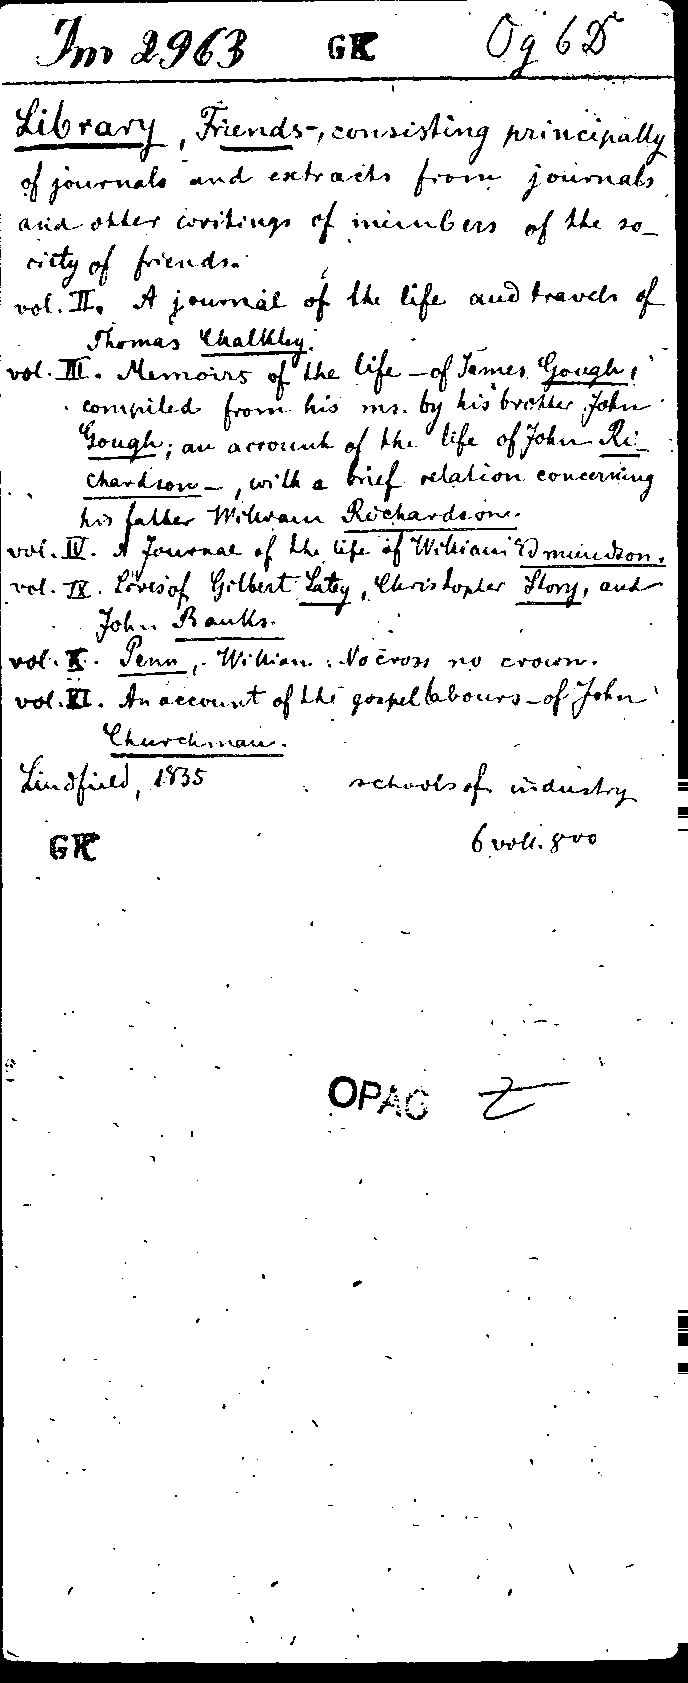 Im 2963 GK Og 6 D
Library, Friends-, consisting principally
of journals and extracts from journals
and other writings of members of the so-
ciety of friends.
vol. II. A journal of the life and travels of
Thomas Chalkley.
vol. III. Memoirs of the life - of James Gough,
compiled from his ms. by his brother John
Gough; an account of the life of John Ri-
chardson -, with a brief relation concerning
his father William Richardson.
vol. IV. A Journal of the life of William Edmundson.
vol. IX. Lives of Gilbert Latey, Christopher Story, and
John Banks.
vol. X. Penn, William. No cross no crown.
vol. XI. An account of the gospel labours - of John
Churchman.
Lindfield, 1835 schools of industry
GK 6 voll. 8vo
OPAC